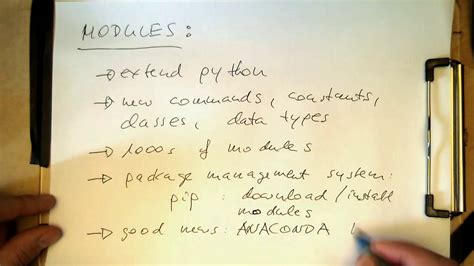 MODULES:
→ extend python
→ new commands, constants,
classes, data types
→ 1000s of modules
→ package management system:
pip : download/install
modules
→ good news: ANACONDA